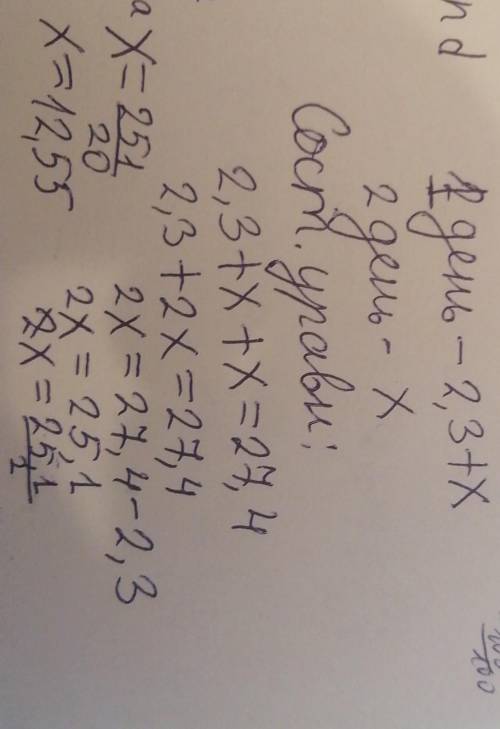 nd
1 день - 2,3+x
2 день - x
Сост. уравн:
2,3+x+x=27,4
2,3+2x=27,4
2x=27,4-2,3
2x=25,1
2x=25,1
x=251/20
x=12,55
а
100